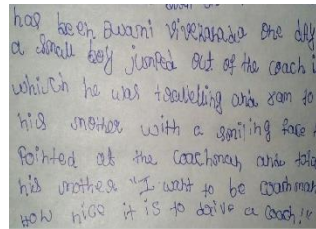 has been swami vivekananda one day
a small boy jumped out of the coach i
which he was travelling and ran to
his mother with a smiling face
Pointed at the coachman and told
his mother "I want to be coachman
How nice it is to drive a coach!"